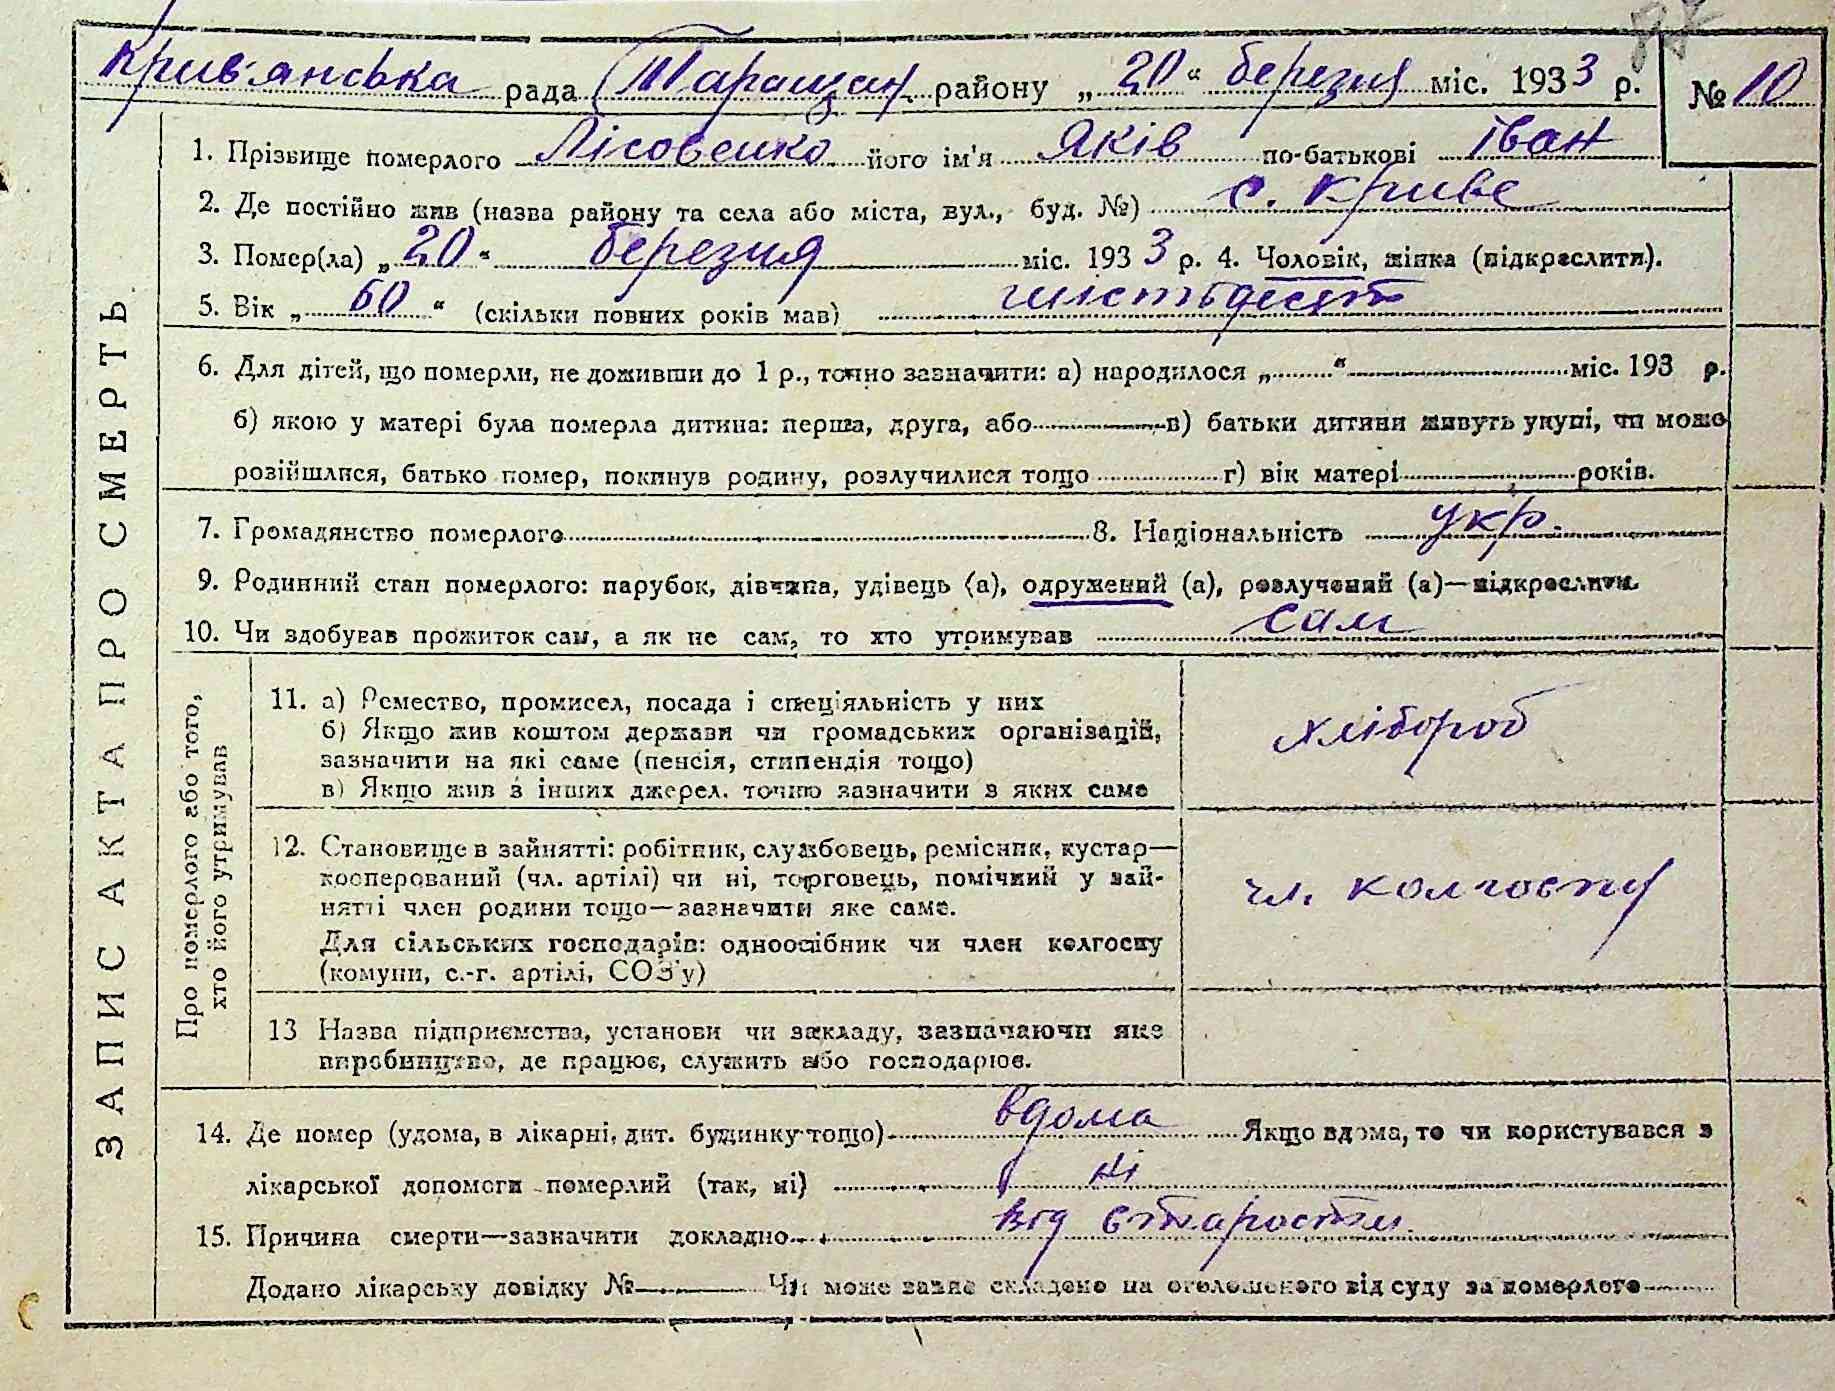 Крив'янська рада Таращан. району „20“ березня міс. 1933 р. № 10
1. Прізвище померлого Лісовенко його ім'я Яків по-батькові Іван
2. Де постійно жив (назва району та села або міста, вул., буд. №) с. Криве
3. Помер(ла) „20“ березня міс. 1933 р. 4. Чоловік, жінка (підкреслити).
5. Вік „60“ (скільки повних років мав) шістьдесят
6. Для дітей, що померли, не доживши до 1 р., точно зазначити: а) народилося „ “ міс. 193 р.
б) якою у матері була померла дитина: перша, друга, або в) батьки дитини живуть укупі, чи може
розійшлися, батько помер, покинув родину, розлучилися тощо г) вік матері років.
7. Громадянство померлого 8. Національність укр.
9. Родинний стан померлого: парубок, дівчина, удівець (а), одружений (а), розлучений (а)—підкреслити.
10. Чи здобував прожиток сам, а як не сам, то хто утримував сам
11. а) Ремество, промисел, посада і спеціяльність у них
б) Якщо жив коштом держави чи громадських організацій,
зазначити на які саме (пенсія, стипендія тощо)
в) Якщо жив з інших джерел, точно зазначити з яких саме
хлібороб
12. Становище в зайнятті: робітник, службовець, ремісник, кустар—
кооперований (чл. артілі) чи ні, торговець, помічний у зай-
нятті член родини тощо—зазначити яке саме.
Для сільських господарів: одноосібник чи член колгоспу
(комуни, с.-г. артілі, СОЗ'у)
чл. колгоспу
13 Назва підприємства, установи чи закладу, зазначаючи яке
виробництво, де працює, служить або господарює.
14. Де помер (удома, в лікарні, дит. будинку тощо) вдома Якщо вдома, то чи користувався з
лікарської допомоги померлий (так, ні) ні
15. Причина смерти—зазначити докладно від старости.
Додано лікарську довідку № Чи може запис складено на оголошеного від суду за померлого
ЗАПИС АКТА ПРО СМЕРТЬ
Про померлого або того,
хто його утримував